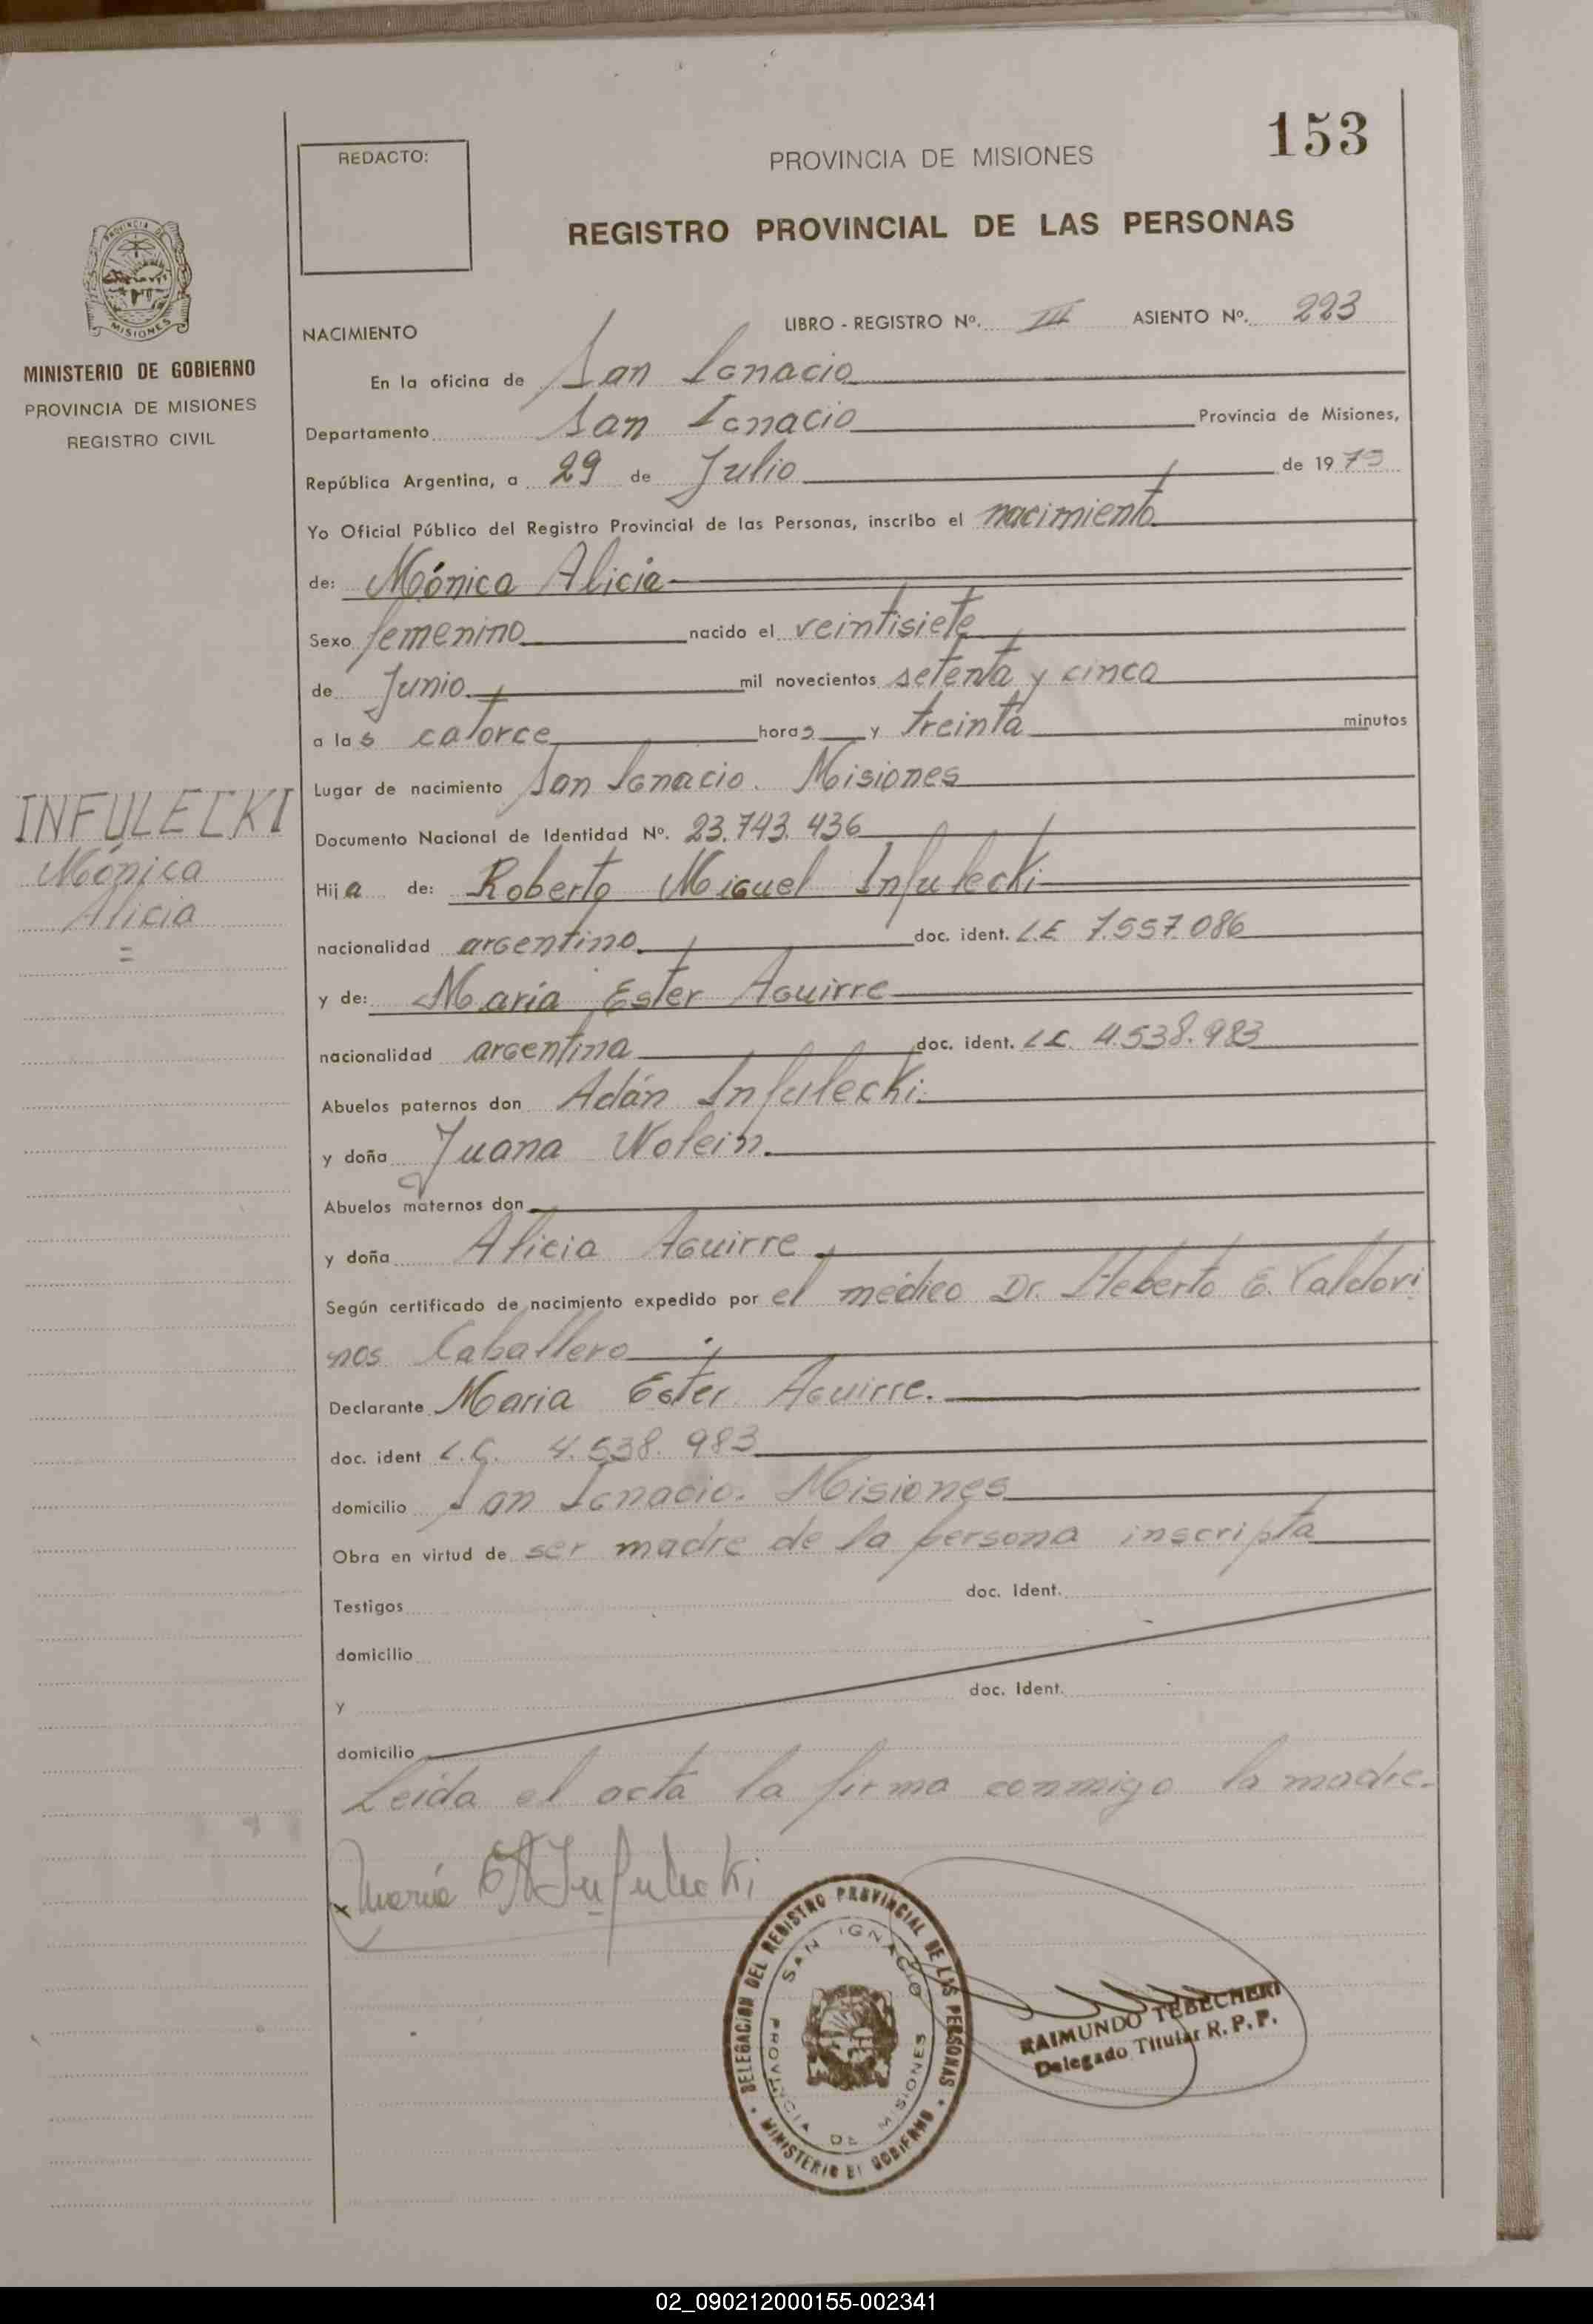 153
REDACTO:
PROVINCIA DE MISIONES
REGISTRO PROVINCIAL DE LAS PERSONAS
PROVINCIA DE
MISIONES
MINISTERIO DE GOBIERNO
PROVINCIA DE MISIONES
REGISTRO CIVIL
NACIMIENTO
LIBRO - REGISTRO Nº. III ASIENTO Nº. 223
En la oficina de San Ignacio
Departamento San Ignacio Provincia de Misiones,
República Argentina, a 29 de Julio de 1975
Yo Oficial Público del Registro Provincial de las Personas, inscribo el nacimiento
de: Mónica Alicia
Sexo femenino nacido el veintisiete
de Junio mil novecientos setenta y cinco
a las catorce horas y treinta minutos
Lugar de nacimiento San Ignacio. Misiones
Documento Nacional de Identidad Nº. 23.743.436
INFULECKI
Mónica
Alicia
=
Hija de: Roberto Miguel Infulecki
nacionalidad argentino doc. ident. L.E 7.557.086
y de: María Ester Aguirre
nacionalidad argentina doc. ident. L.C. 4.538.983
Abuelos paternos don Adán Infulecki
y doña Juana Wolein
Abuelos maternos don
y doña Alicia Aguirre
Según certificado de nacimiento expedido por el médico Dr. Heberto E. Valdovi
nos Caballero
Declarante María Ester Aguirre.
doc. ident L.C. 4.538.983
domicilio San Ignacio. Misiones
Obra en virtud de ser madre de la persona inscripta
Testigos doc. Ident.
domicilio
y doc. Ident.
domicilio
Leída el acta la firma conmigo la madre.
x María E A Infulecki
DELEGACION DEL REGISTRO PROVINCIAL DE LAS PERSONAS
SAN IGNACIO
PROVINCIA DE MISIONES
MINISTERIO DE GOBIERNO
RAIMUNDO TEBECHERI
Delegado Titular R. P. P.
02_090212000155-002341